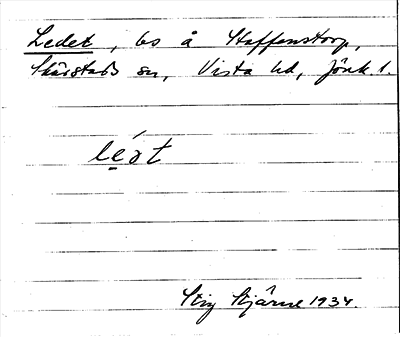 Ledet, bs å Staffanstorp,
Skärstads sn, Vista hd, Jönk. l.
lé̱ət
Stig Stjärne 1934.